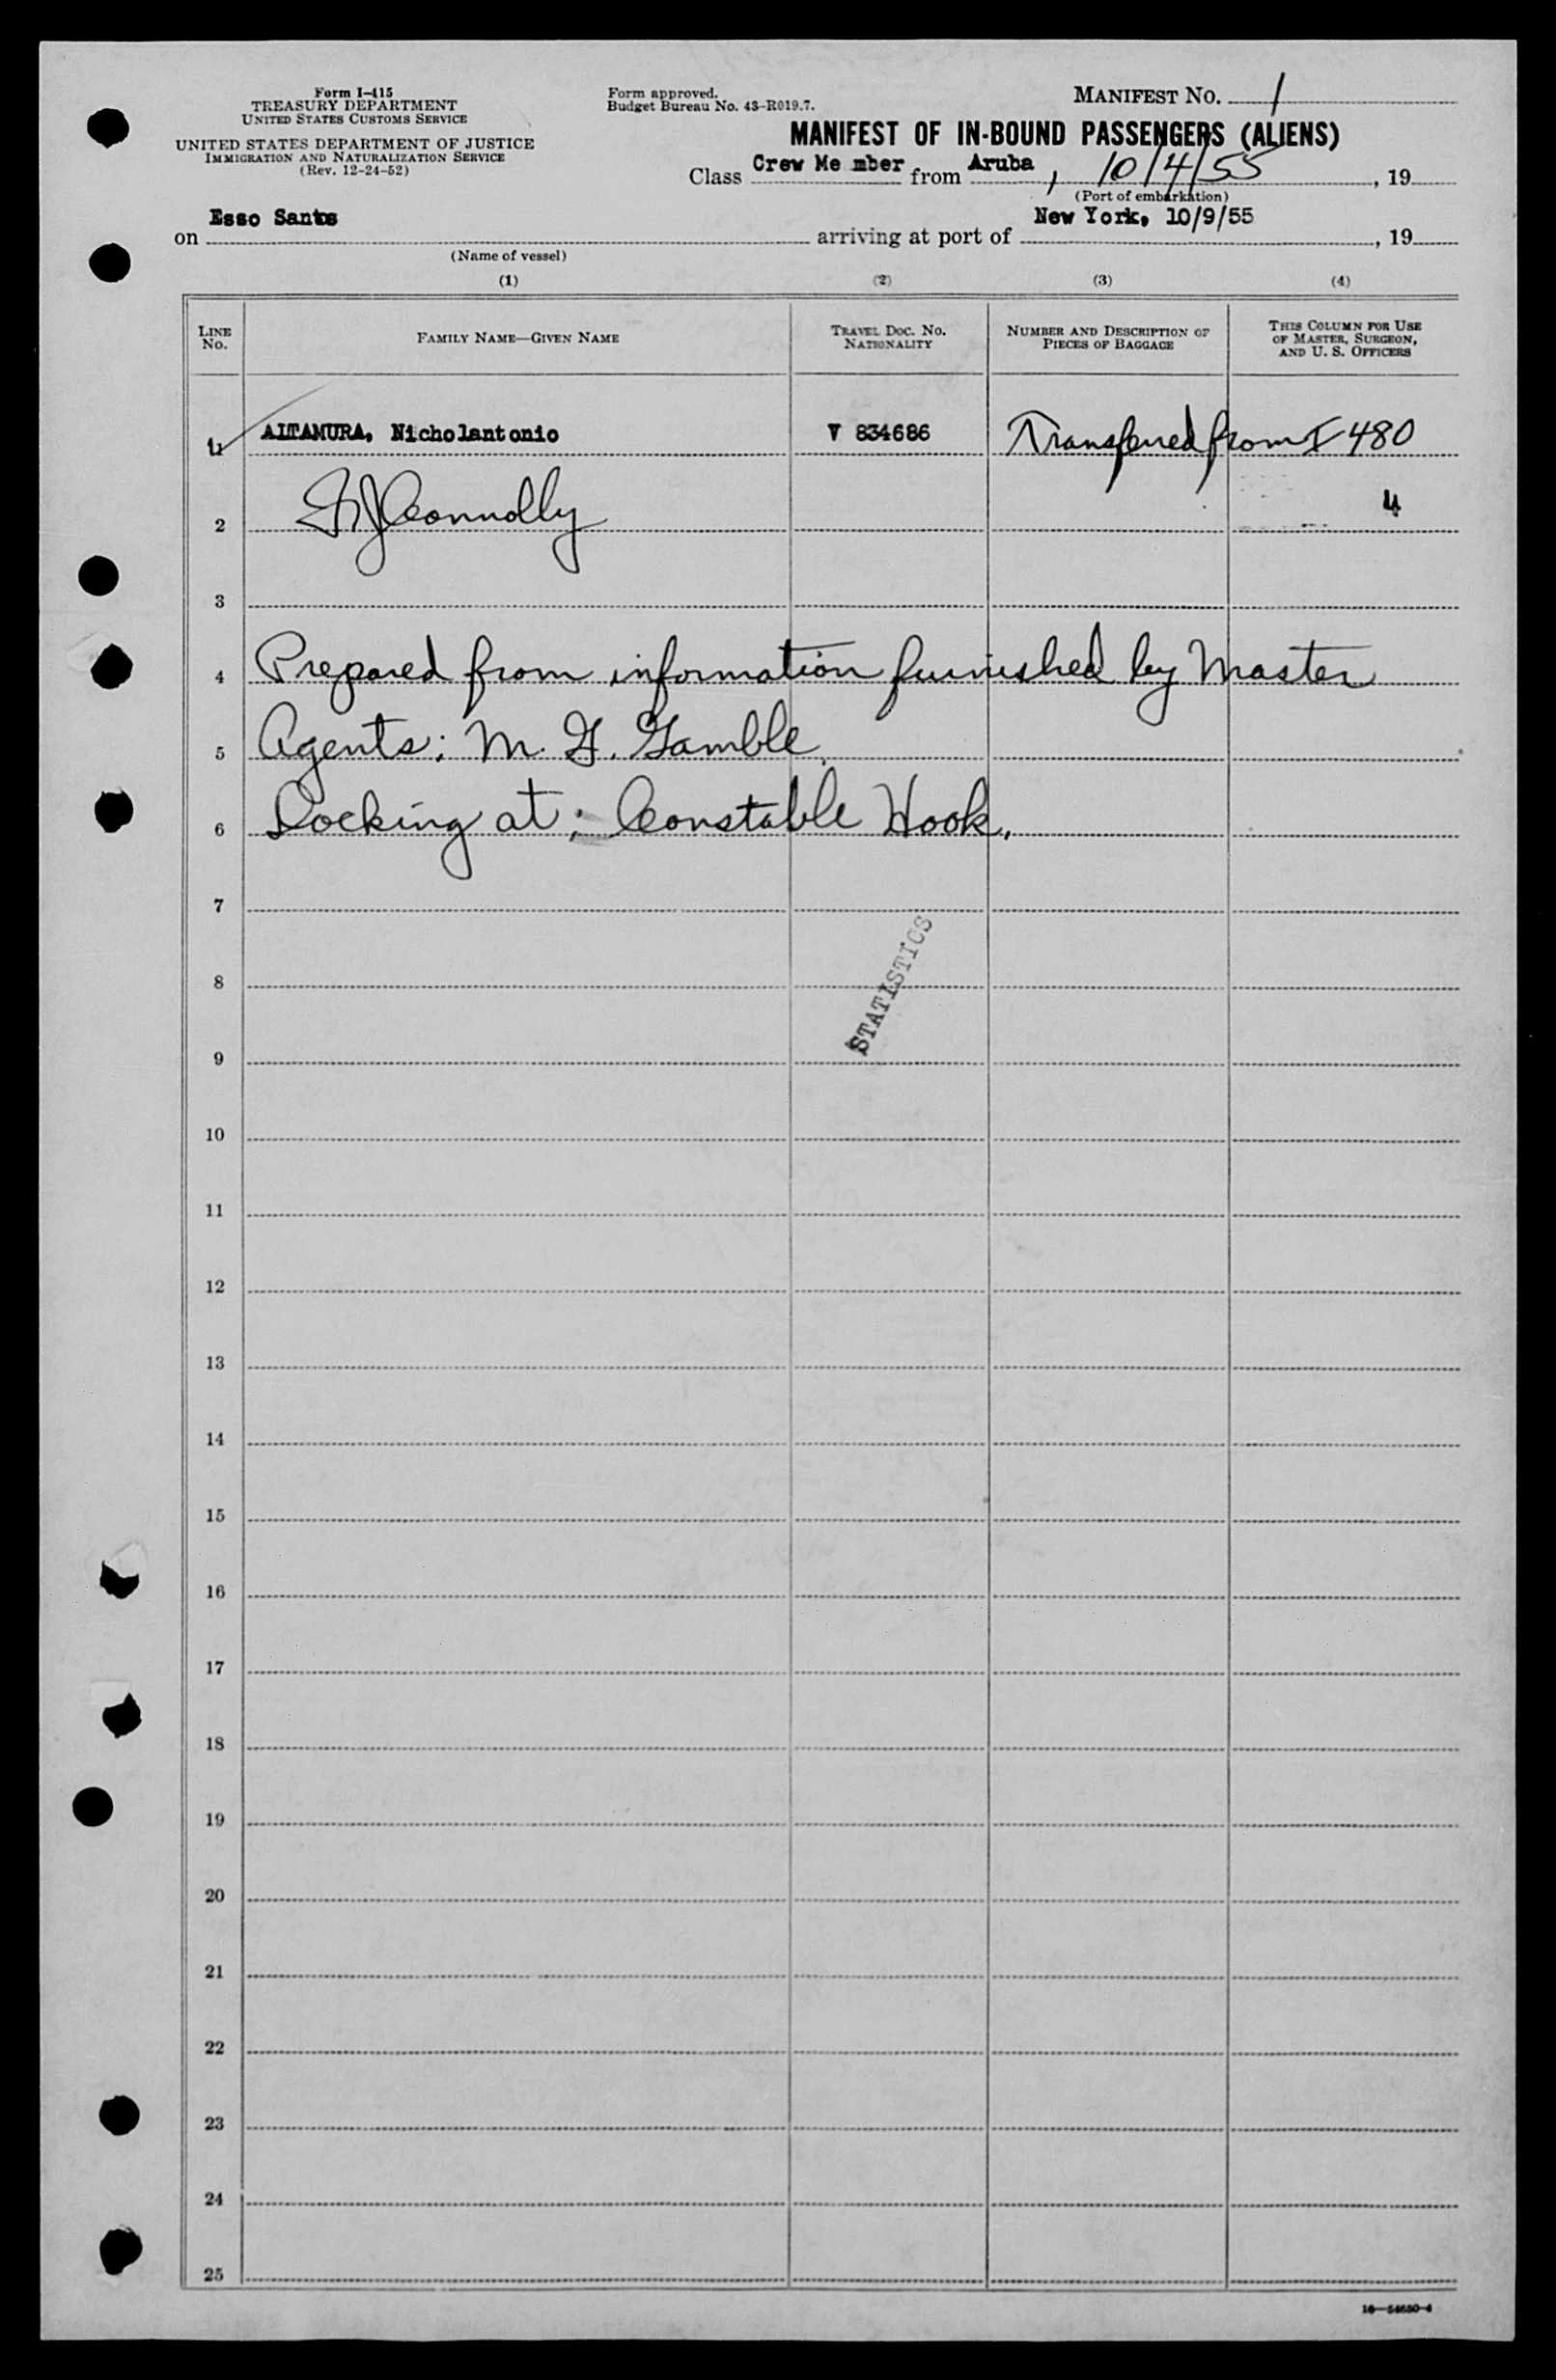 Form I-415
TREASURY DEPARTMENT
UNITED STATES CUSTOMS SERVICE
UNITED STATES DEPARTMENT OF JUSTICE
IMMIGRATION AND NATURALIZATION SERVICE
(Rev. 12-24-52)
Form approved.
Budget Bureau No. 43-R019.7.
MANIFEST NO. 1
MANIFEST OF IN-BOUND PASSENGERS (ALIENS)
Class Crew Me mber from Aruba, 10/4/55, 19
(Port of embarkation)
on Esso Santos arriving at port of New York, 10/9/55, 19
(Name of vessel)
(1) (2) (3) (4)
LINE NO.
FAMILY NAME—GIVEN NAME
TRAVEL DOC. NO. NATIONALITY
NUMBER AND DESCRIPTION OF PIECES OF BAGGAGE
THIS COLUMN FOR USE OF MASTER, SURGEON, AND U. S. OFFICERS
1 ALTAMURA, Nicholantonio V 834686 Transferred from I 480
2 Connolly 4
3
4 Prepared from information furnished by Master
5 Agents: M. F. Gamble
6 Docking at: Constable Hook.
7
8
STATISTICS
9
10
11
12
13
14
15
16
17
18
19
20
21
22
23
24
25